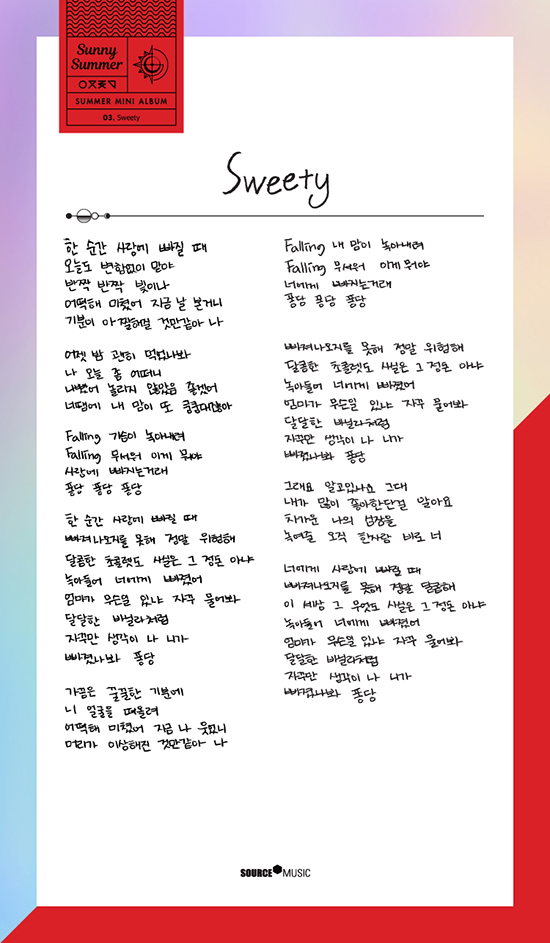 Sunny
Summer
SUMMER MINI ALBUM
03. Sweety
Sweety
한 순간 사랑에 빠질 때
오늘도 변함없이 맑아
반짝 반짝 빛이나
어떡해 미쳤어 지금 날 보거니
기분이 아찔해질 것만같아 나
어젯 밤 괜히 먹었나봐
나 오늘 좀 어떠니
내뱉어 놀라지 않았음 좋겠어
너땜에 내 맘이 또 쿵쿵대잖아
Falling 가슴이 녹아내려
Falling 무서워 이게 뭐야
사랑에 빠지는거래
퐁당 퐁당 퐁당
한 순간 사랑에 빠질 때
빠져나오지를 못해 정말 위험해
달콤한 초콜렛도 사실은 그 정돈 아냐
녹아들어 너에게 빠졌어
엄마가 무슨일 있냐 자꾸 물어봐
달달한 바닐라처럼
자꾸만 생각이 나 니가
빠졌나봐 퐁당
가끔은 꿀꿀한 기분에
니 얼굴을 떠올려
어떡해 미쳤어 지금 나 웃었니
머리가 이상해진 것만같아 나
Falling 내 맘이 녹아내려
Falling 무서워 이게 뭐야
너에게 빠지는거래
퐁당 퐁당 퐁당
빠져나오지를 못해 정말 위험해
달콤한 초콜렛도 사실은 그 정돈 아냐
녹아들어 너에게 빠졌어
엄마가 무슨일 있냐 자꾸 물어봐
달달한 바닐라처럼
자꾸만 생각이 나 니가
빠졌나봐 퐁당
그래요 알고있나요 그대
내가 많이 좋아한단걸 알아요
차가운 나의 심장을
녹여줄 오직 한사람 바로 너
너에게 사랑에 빠질 때
빠져나오지를 못해 정말 달콤해
이 세상 그 무엇도 사실은 그 정돈 아냐
녹아들어 너에게 빠졌어
엄마가 무슨일 있냐 자꾸 물어봐
달달한 바닐라처럼
자꾸만 생각이 나 니가
빠졌나봐 퐁당
SOURCE MUSIC